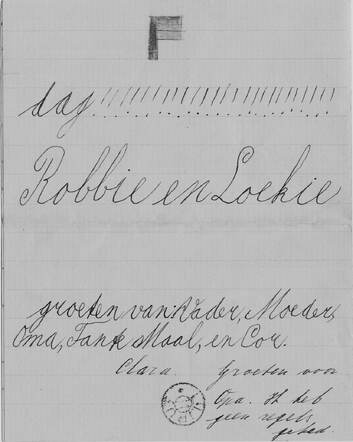 dag!!!!!!!!!!!!!!!!!!!!
Robbie en Loekie
groeten van: Vader, Moeder,
Oma, Tante Maal, en Cor.
Clara. Groeten voor
Opa. Ik heb
geen regels
gehad.